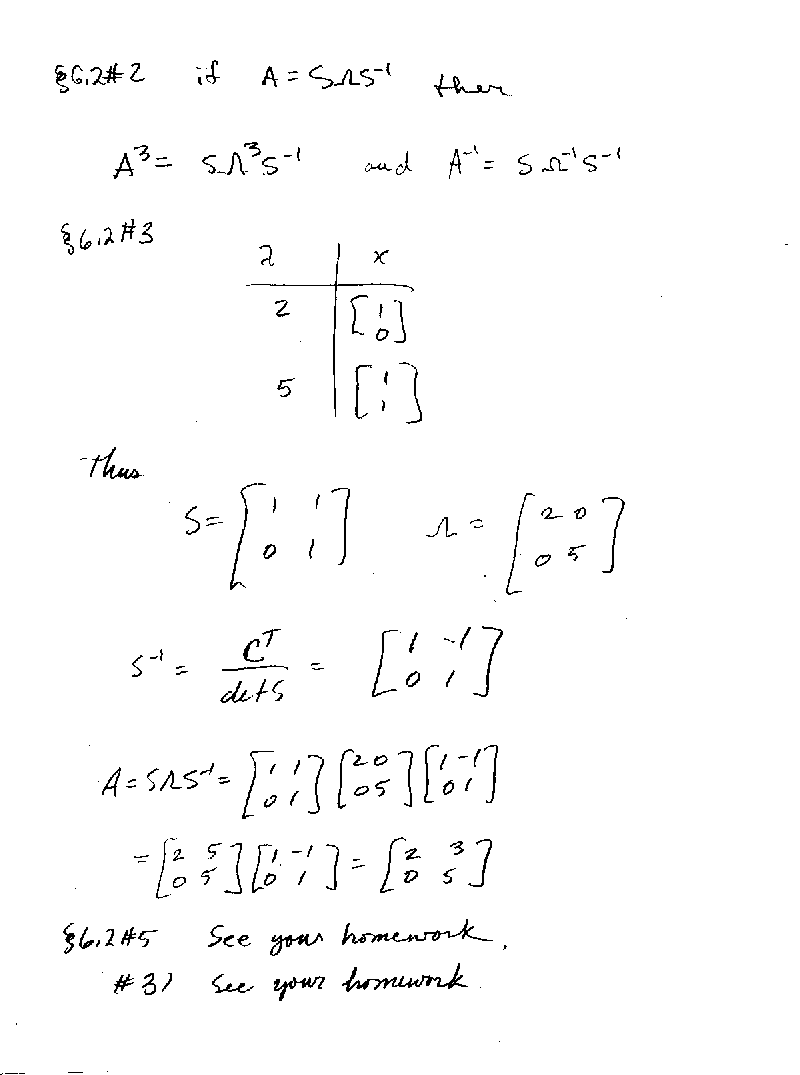 §6.2#2 if A = SΛS⁻¹ then
A³ = SΛ³S⁻¹ and A⁻¹ = SΛ⁻¹S⁻¹
§6.2#3
λ | x
2 | [1; 0]
5 | [1; 1]
Thus
S = [1 1; 0 1] Λ = [2 0; 0 5]
S⁻¹ = Cᵀ/det S = [1 -1; 0 1]
A = SΛS⁻¹ = [1 1; 0 1] [2 0; 0 5] [1 -1; 0 1]
= [2 5; 0 5] [1 -1; 0 1] = [2 3; 0 5]
§6.2#5 See your homework.
#31 See your homework.